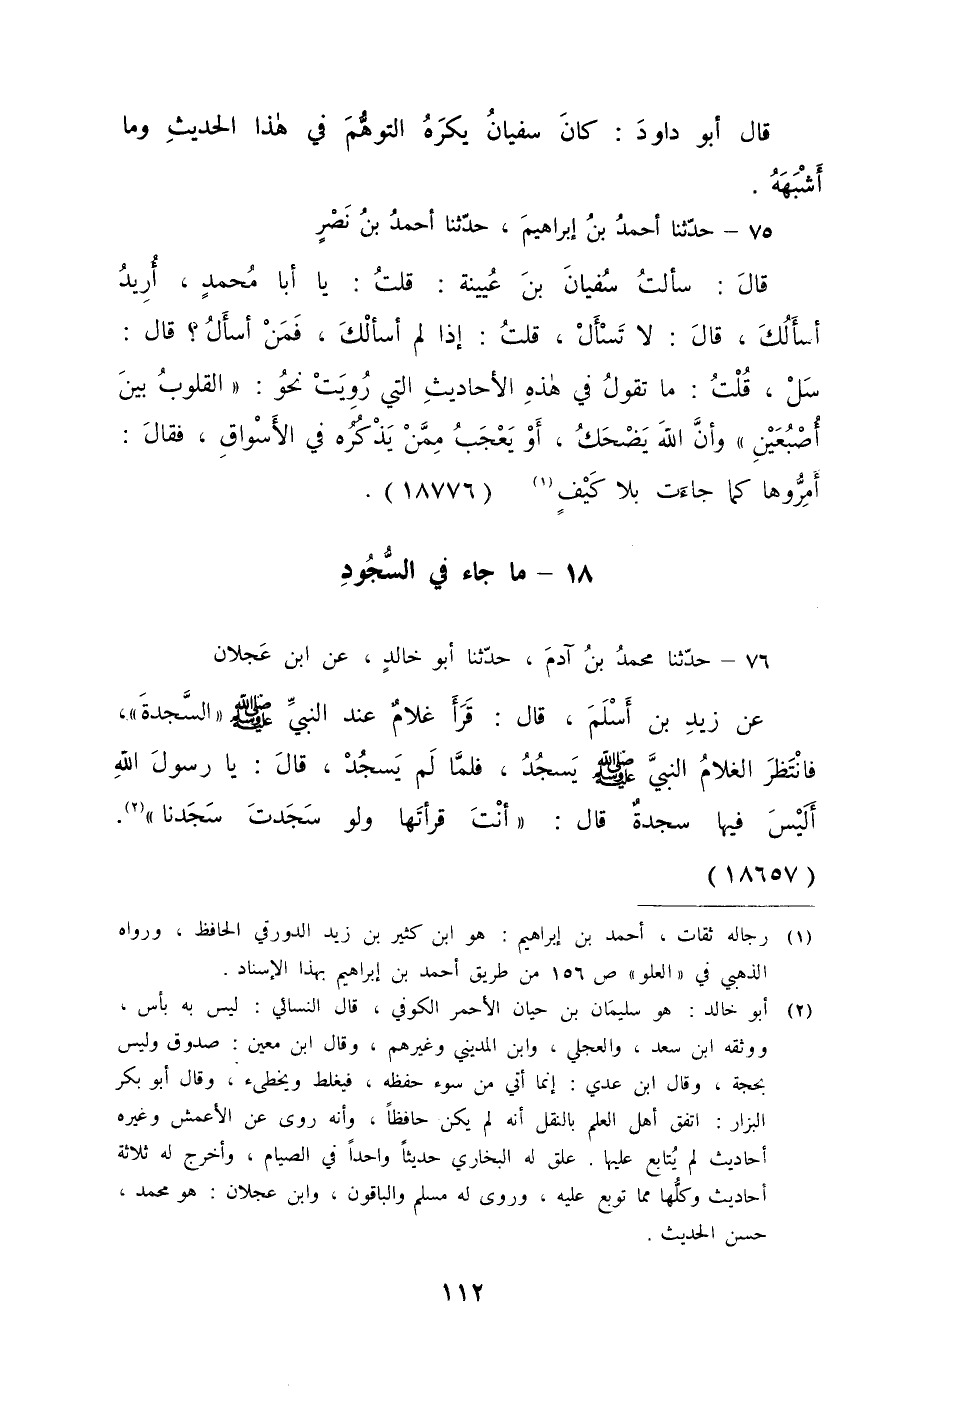 قال أبو داودَ : كانَ سفيانُ يكرَهُ التوهُّمَ في هٰذا الحديثِ وما
أَشْبَهَهُ .
٧٥ – حدّثنا أحمدُ بنُ إبراهيمَ ، حدّثنا أحمدُ بنُ نَصْرٍ
قالَ : سألتُ سُفيانَ بنَ عُيينة : قلتُ : يا أبا مُحمدٍ ، أُرِيدُ
أسأَلُكَ ، قالَ : لا تَسْأَلْ ، قلتُ : إذا لم أسألْكَ ، فَمَنْ أسأَلُ ؟ قال :
سَلْ ، قُلْتُ : ما تقولُ في هٰذهِ الأحاديثِ التي رُوِيَتْ نحوُ : « القلوبُ بينَ
أُصْبُعَيْنِ » وأنَّ اللّهَ يَضْحَكُ ، أَوْ يَعْجَبُ مِمَّنْ يَذْكُرُه في الأَسْواقِ ، فقالَ :
أَمِرُّوها كما جاءَت بلا كَيْفٍ(١) (١٨٧٧٦) .
١٨ – ما جاء في السُّجُودِ
٧٦ – حدّثنا محمدُ بنُ آدمَ ، حدّثنا أبو خالدٍ ، عن ابن عَجلان
عن زيدِ بن أَسْلَمَ ، قال : قَرَأَ غلامٌ عند النبيِّ ﷺ «السَّجدةَ»،
فانْتَظرَ الغلامُ النبيَّ ﷺ يَسجدُ ، فلمَّا لَم يَسجُدْ ، قالَ : يا رسولَ اللّهِ
أَلَيْسَ فيها سجدةٌ قال : « أنْتَ قرأتَها ولو سَجَدتَ سَجَدنا »(٢).
(١٨٦٥٧)
(١) رجاله ثقات ، أحمد بن إبراهيم : هو ابن كثير بن زيد الدورقي الحافظ ، ورواه
الذهبي في «العلو» ص ١٥٦ من طريق أحمد بن إبراهيم بهذا الإسناد .
(٢) أبو خالد : هو سليمَان بن حيان الأحمر الكوفي ، قال النسائي : ليس به بأس ،
ووثقه ابن سعد ، والعجلي ، وابن المديني وغيرهم ، وقال ابن معين : صدوق وليس
بحجة ، وقال ابن عدي : إنما أتي من سوء حفظه ، فيغلط ويخطىء ، وقال أبو بكر
البزار : اتفق أهل العلم بالنقل أنه لم يكن حافظاً ، وأنه روى عن الأعمش وغيره
أحاديث لم يُتابع عليها . علق له البخاري حديثاً واحداً في الصيام ، وأخرج له ثلاثة
أحاديث وكلُّها مما توبع عليه ، وروى له مسلم والباقون ، وابن عجلان : هو محمد ،
حسن الحديث .
١١٢